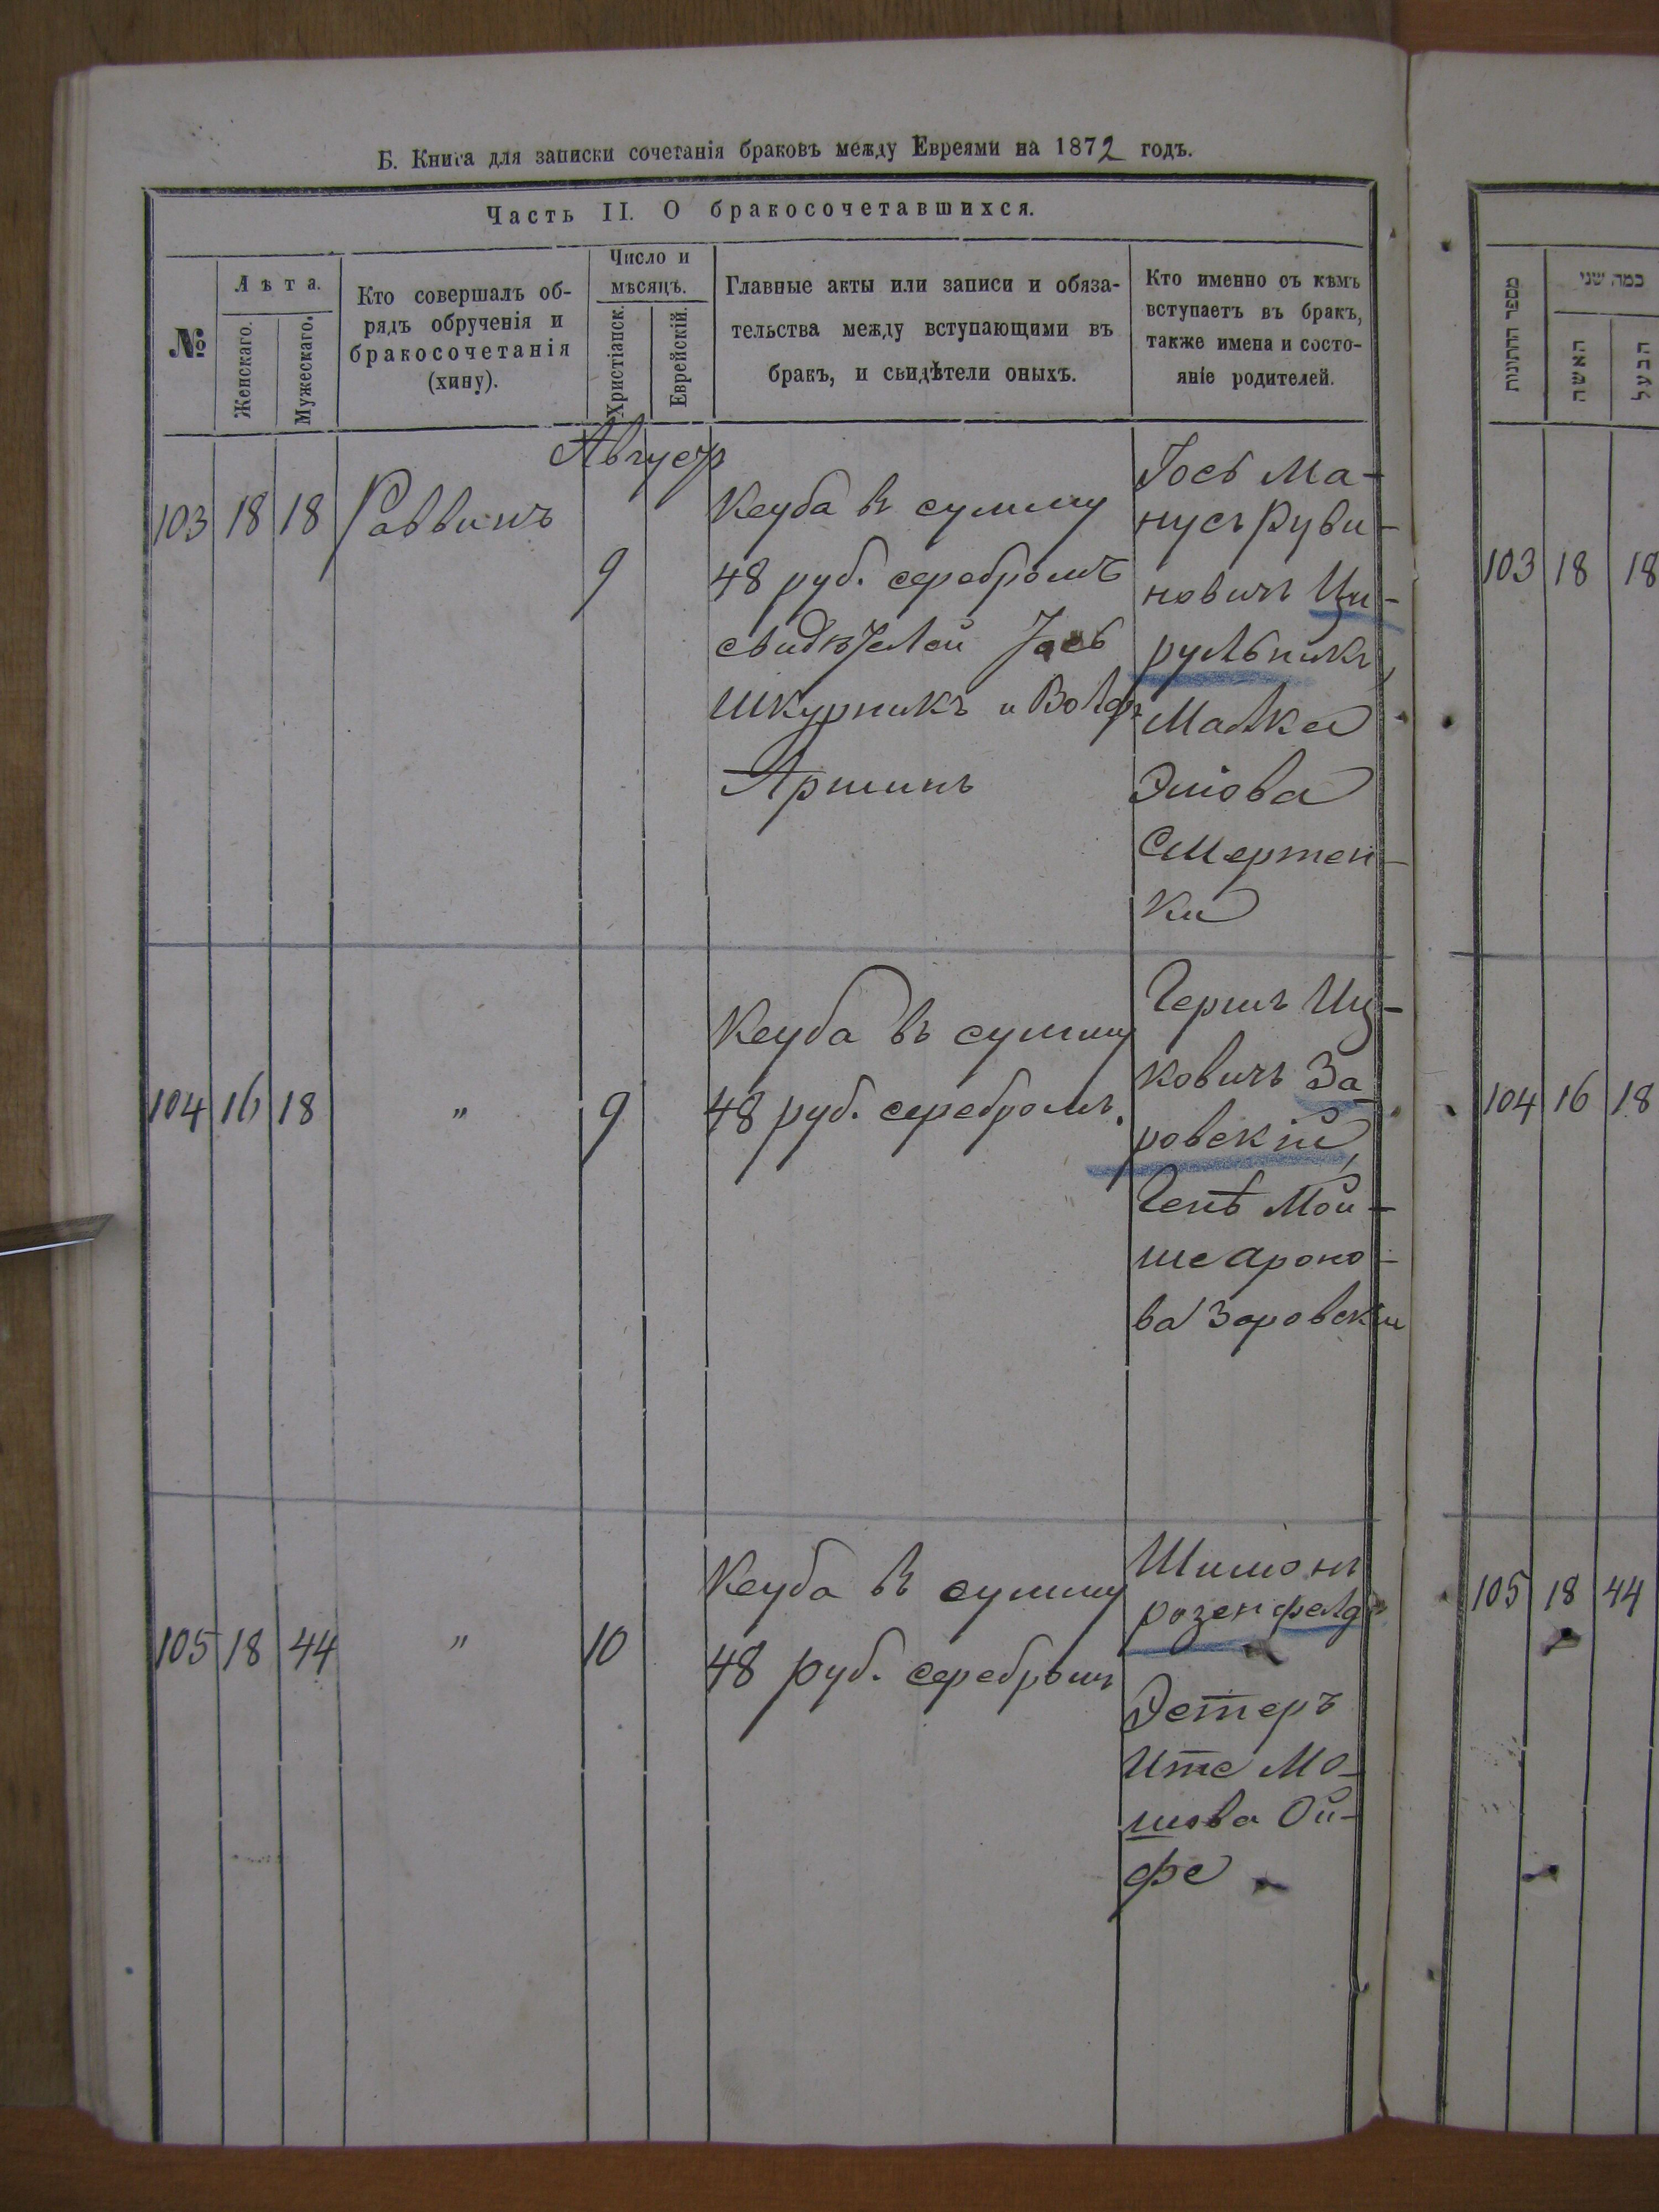 Б. Книга для записки сочетанія браковъ между Евреями на 1872 годъ.
Часть II. О бракосочетавшихся.
№
Лѣта.
Женскаго.
Мужескаго.
Кто совершалъ об-
рядъ обрученія и
бракосочетанія
(хипу).
Число и
мѣсяцъ.
Христіанск.
Еврейскій.
Главные акты или записи и обяза-
тельства между вступающими въ
бракъ, и свидѣтели оныхъ.
Кто именно съ кѣмъ
вступаетъ въ бракъ,
также имена и состо-
яніе родителей.
Августъ
103 18 18 Раввинъ
9
Кеуба въ сумму
48 руб. серебромъ
свидѣтелей Іось
Шкурникъ и Волфъ
Аршинъ
Іось Ма-
нусъ Руви-
новичъ Ци-
рульникъ,
Малка
Эліова
Смертен-
ки
104 16 18 " 9
Кеуба въ сумму
48 руб. серебромъ.
Гершъ Иц-
ковичъ За-
ровскій,
Генѣ Мой-
ше Ароно-
ва Заровски
105 18 44 " 10
Кеуба въ сумму
48 руб. серебромъ
Шимонъ
розенфелд
Эстеръ
Ите Мо-
шова Ой-
фе
מספר החתונות
כמה שני
האשה
הבעל
103 18 18
104 16 18
105 18 44